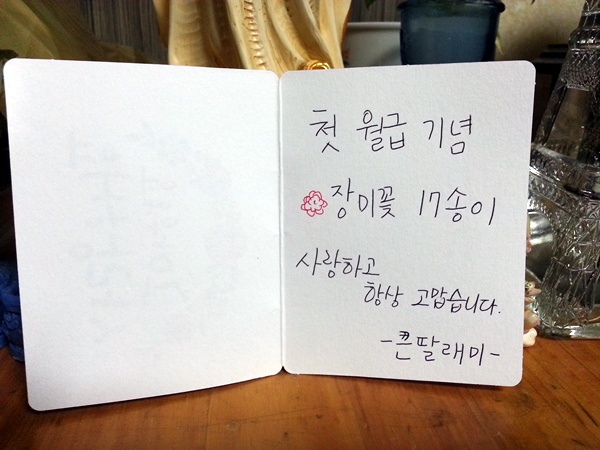 첫 월급 기념
장미꽃 17송이
사랑하고
항상 고맙습니다.
-큰딸래미-